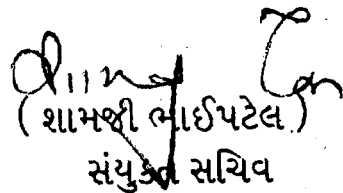 (શામજી ભાઈપટેલ)
સંયુક્ત સચિવ